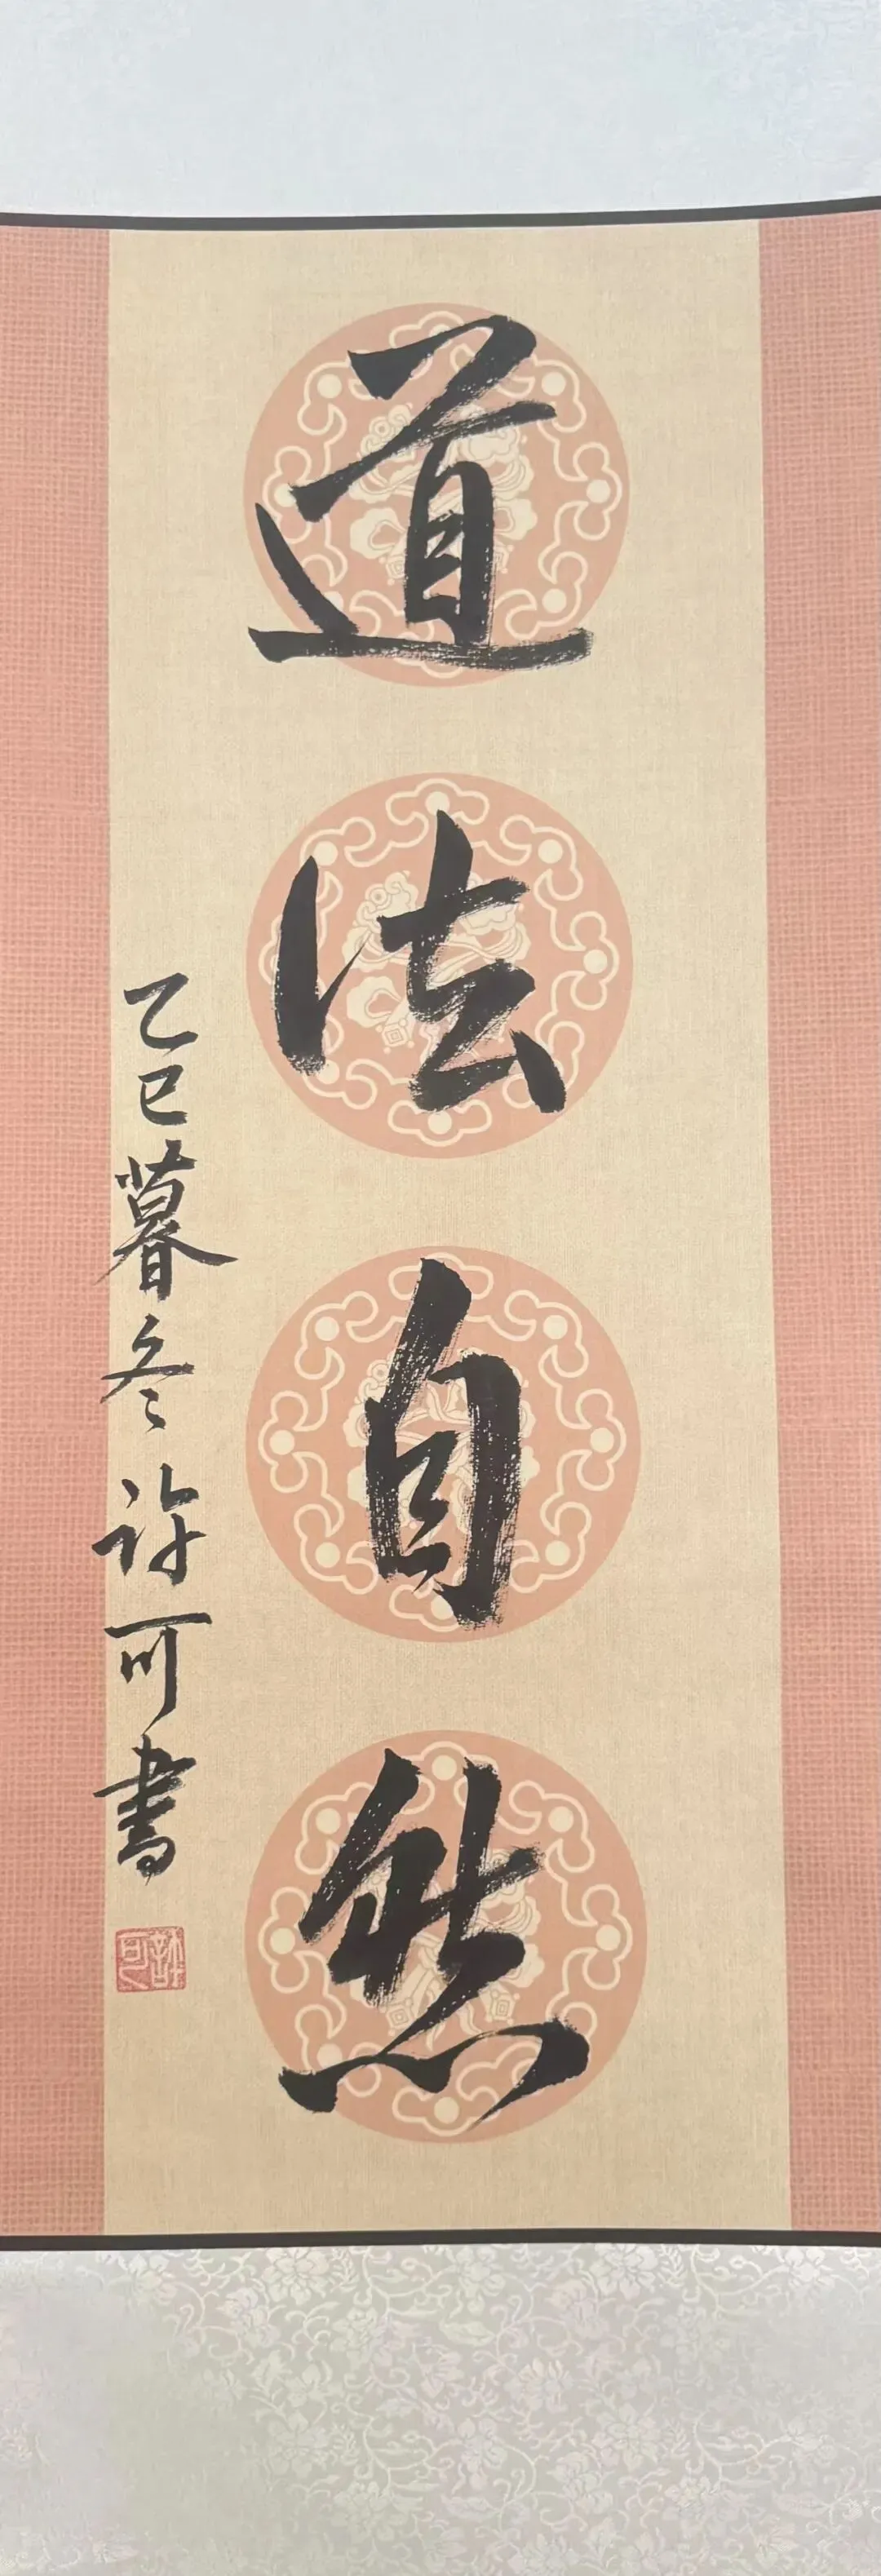 道法自然
乙巳暮冬许可書
許可